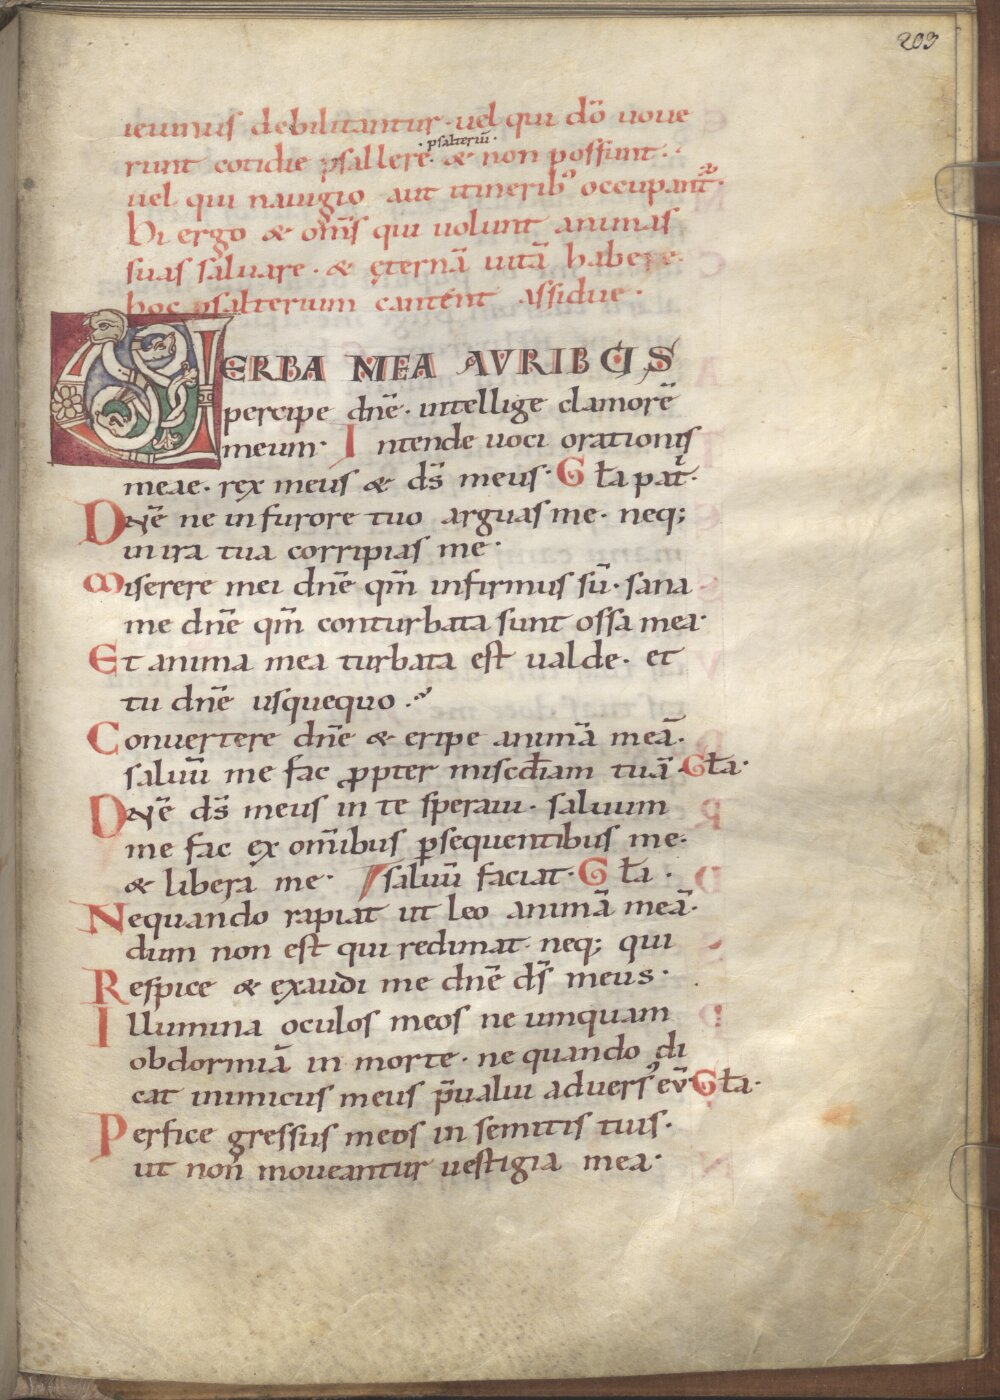 203
ieiunus debilitantur · uel qui dō uoue
· psalteriū ·
runt cotidie psallere · & non possunt ·
uel qui nauigio aut itinerib; occupant̄ ·
Hi ergo & om̄s qui uolunt animas
suas saluare · & ęternā uitā habere ·
hoc psalterium cantent assidue ·
VERBA MEA AVRIBUS
percipe dn̄e · intellige clamorē
meum · Intende uoci orationis
meae · rex meus & d̄s meus · Gl̄a pat̄ ·
Dn̄e ne in furore tuo arguas me · neq;
in ira tua corripias me ·
Miserere mei dn̄e qm̄ infirmus sū · sana
me dn̄e qm̄ conturbata sunt ossa mea ·
Et anima mea turbata est ualde · et
tu dn̄e usquequo ·
Convertere dn̄e & eripe animā meā ·
saluū me fac ꝓpter misc̄diam tuā · Gl̄a ·
Dn̄e d̄s meus in te speraui · saluum
me fac ex om̄ibus ꝑsequentibus me ·
& libera me · saluū faciat · Gl̄a ·
Nequando rapiat ut leo animā meā ·
dum non est qui redimat neq; qui
Respice & exaudi me dn̄e d̄s meus ·
Illumina oculos meos ne umquam
obdormiā in morte · ne quando di
cat inimicus meus p̄ualui aduers' eū Gl̄a ·
Perfice gressus meos in semitis tuis ·
ut non moueantur uestigia mea ·